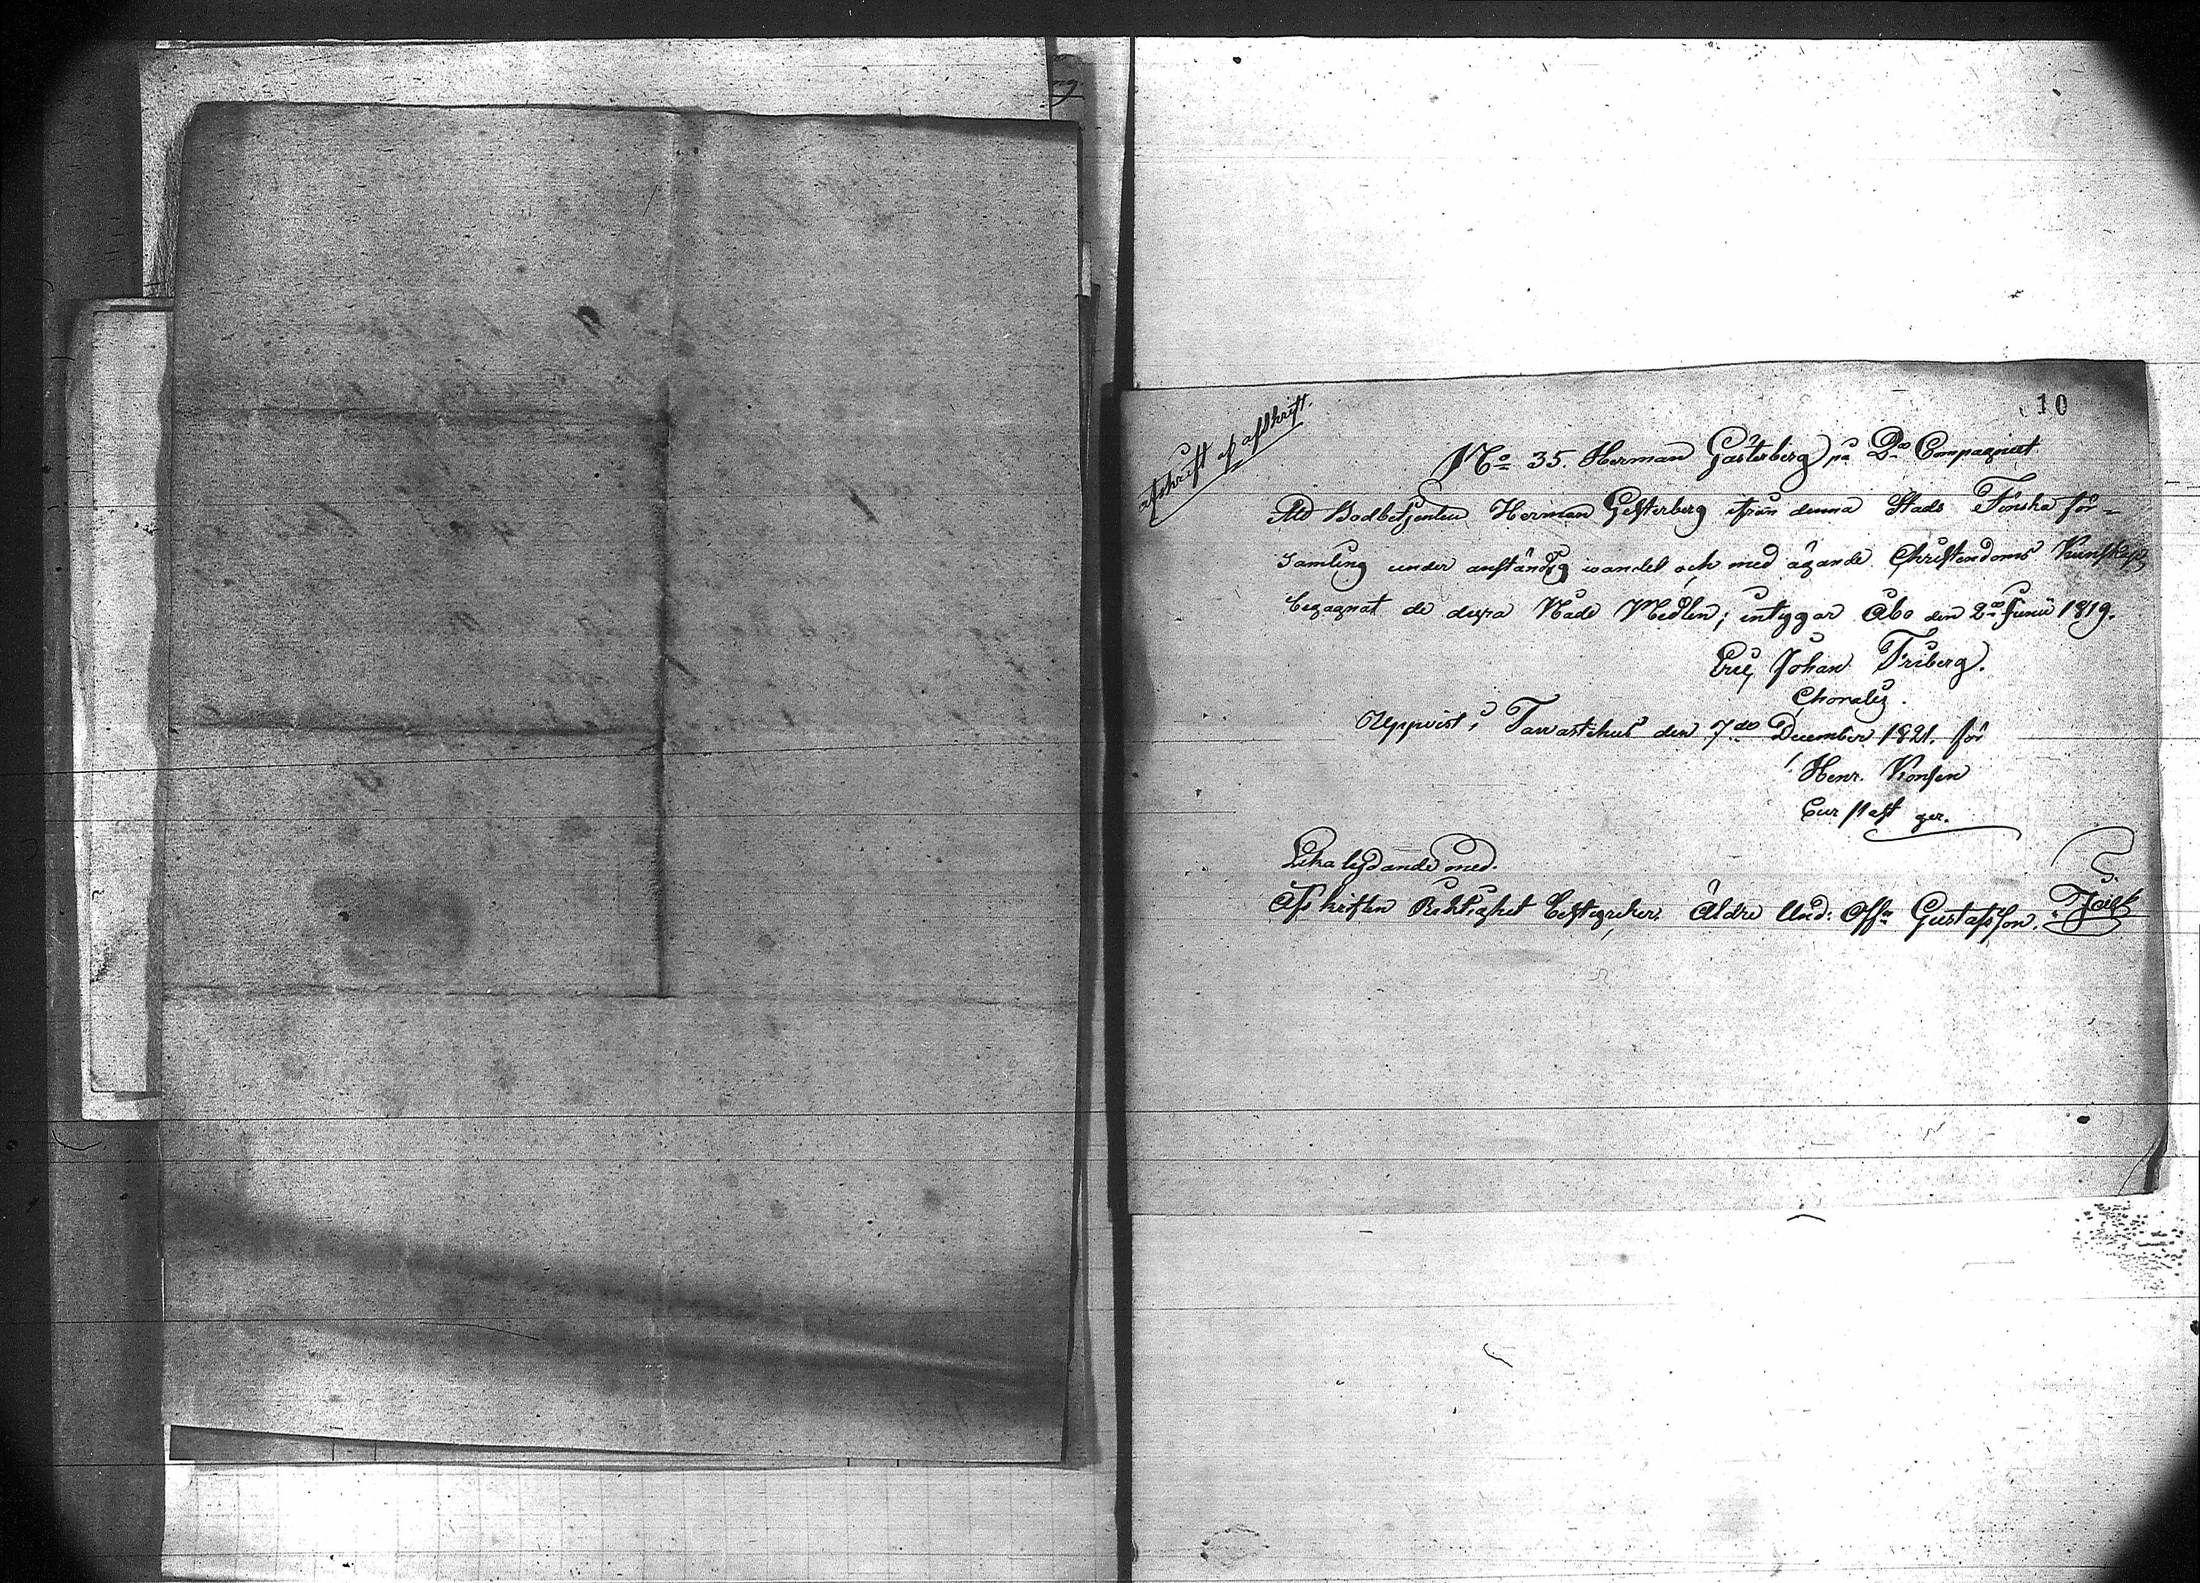 10
afskrift af afskrift.
No 35. Herman Gästerberg på 2a Compagniet
Att Bodbetjenten Herman Gesterberg ifrån denna Stads Finska för-
samling under anständig wandel och med ägande Christendoms Kunskap
begagnat de dyra Nåde Medlen; intygar Åbo den 2a Junii 1819.
Johan Friberg.
Uppvist i Tavastehus den 7de December 1821. för
Henr.
Lika lydande med.
Afskriften Riktighet Äldre Und: Off Gustafsson.